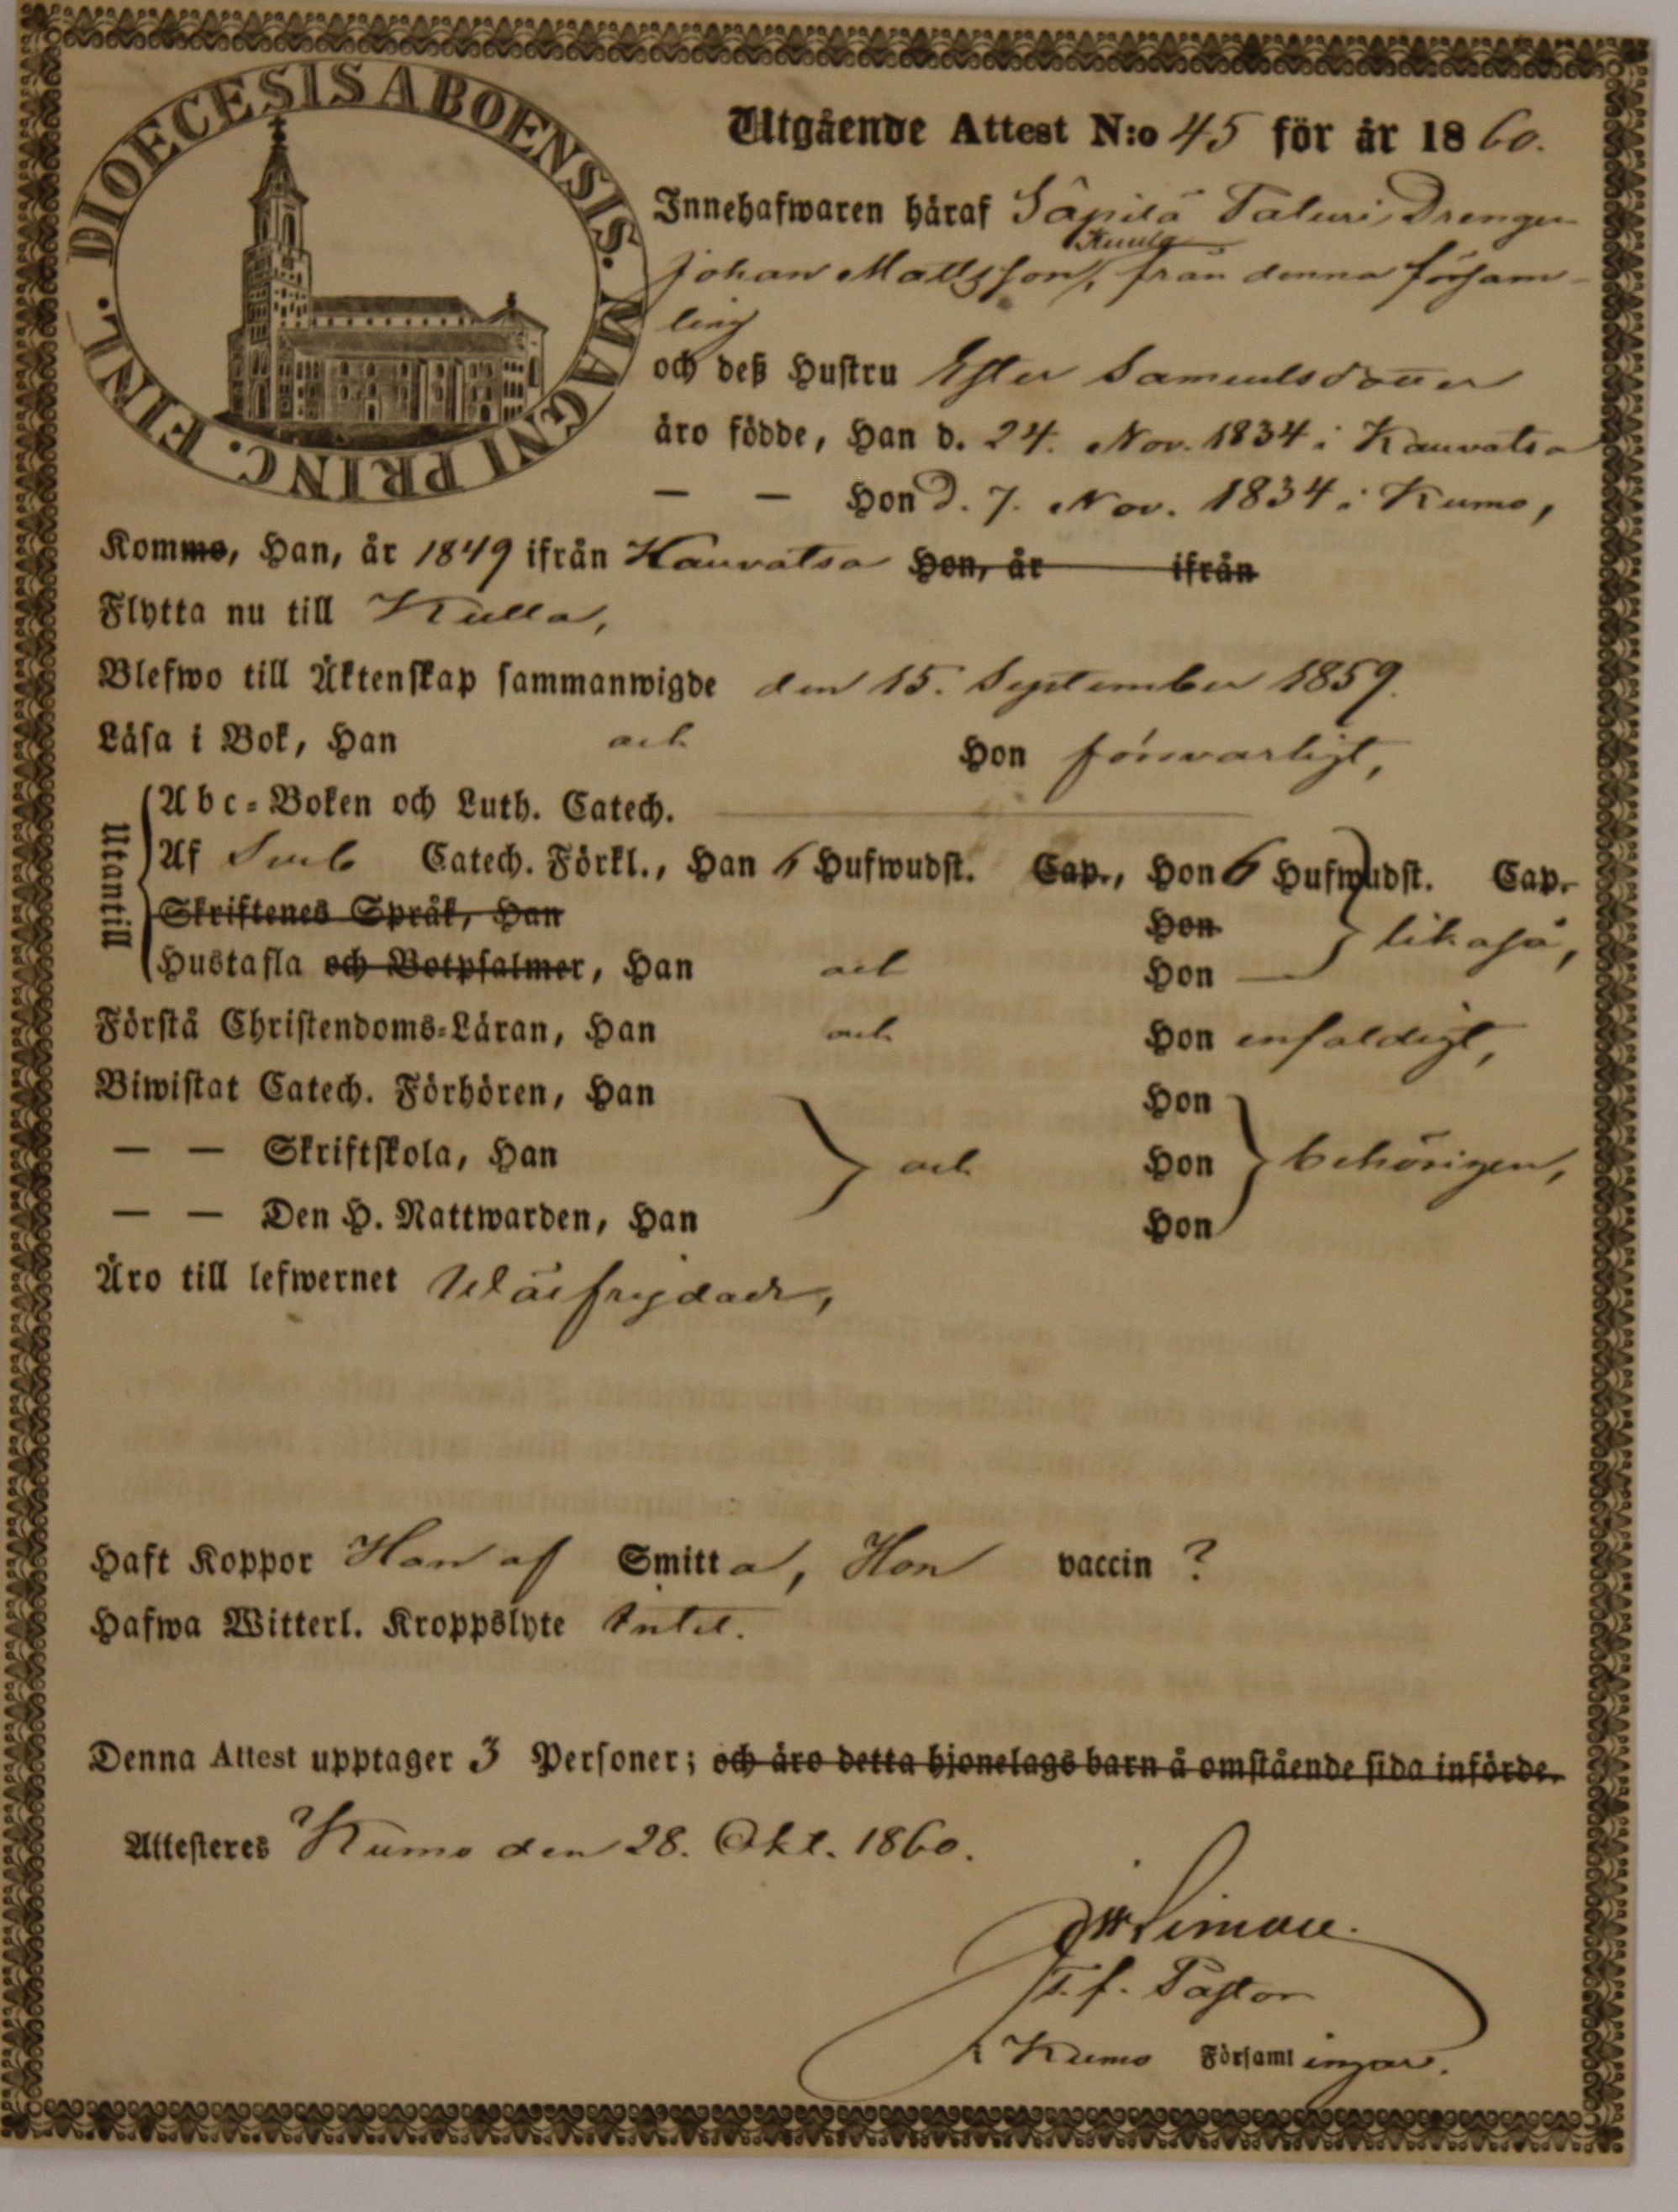 DIOECESIS ABOENSIS. MAGNI PRINC. FINL.
Utgående Attest N:o 45 för år 1860.
Innehafwaren häraf Säpilä Taluri Drengen
Kuula
Johan Mattsson, från denna försam-
ling
och deß Hustru Ester Samuelsdotter
äro födde, Han d. 24. Nov. 1834 i Kauvatsa
— — Hon d. 7. Nov. 1834 i Kumo,
Komme, Han, år 1849 ifrån Kauvatsa Hon, år ifrån
Flytta nu till Kulla,
Blefwo till Äktenskap sammanwigde den 15. September 1859.
Läsa i Bok, Han och Hon försvarligt,
Utantill
Abc-Boken och Luth. Catech.
Af Sveb Catech. Förkl., Han 6 Hufwudst. Cap., Hon 6 Hufwudst. Cap.
Skriftenes Språk, Han Hon likaså,
Hustafla och Botpsalmer, Han och Hon —
Förstå Christendoms-Läran, Han och Hon enfaldigt,
Biwistat Catech. Förhören, Han Hon
— — Skriftskola, Han och Hon behörigen,
— — Den H. Nattwarden, Han Hon
Äro till lefwernet Wälfrejdade,
Haft Koppor Han af Smitta, Hon vaccin ?
Hafwa Witterl. Kroppslyte Intet.
Denna Attest upptager 3 Personer; och äro detta hjonelags barn å omstående sida införde.
Attesteres Kumo den 28. Okt. 1860.
T. f. Pastor
i Kumo Församlingar.